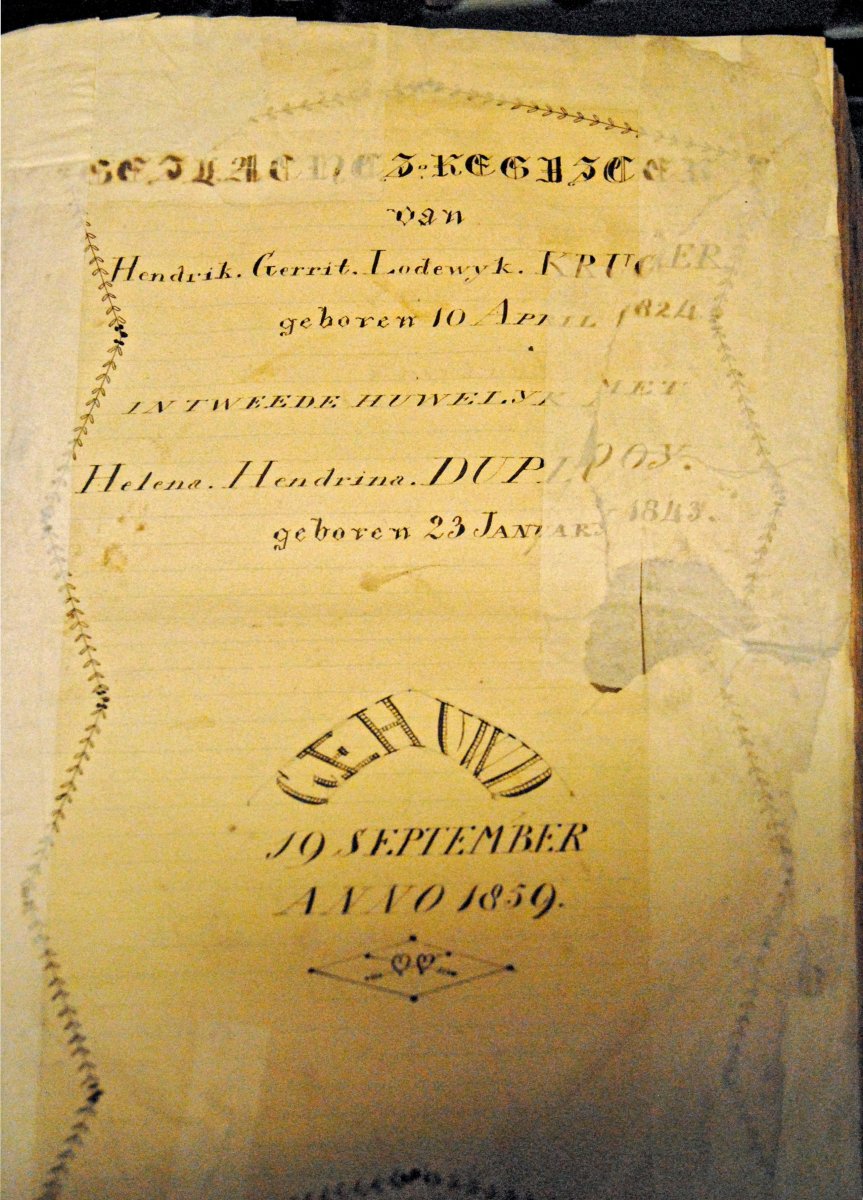 GESLACHTS-REGISTER
van
Hendrik. Gerrit. Lodewyk. KRUGER
geboren 10 APRIL 1824
IN TWEEDE HUWELYK MET
Helena. Hendrina. DUPLOOY.
geboren 23 JANUARY 1843.
GEHUWD
19 SEPTEMBER
ANNO 1859.